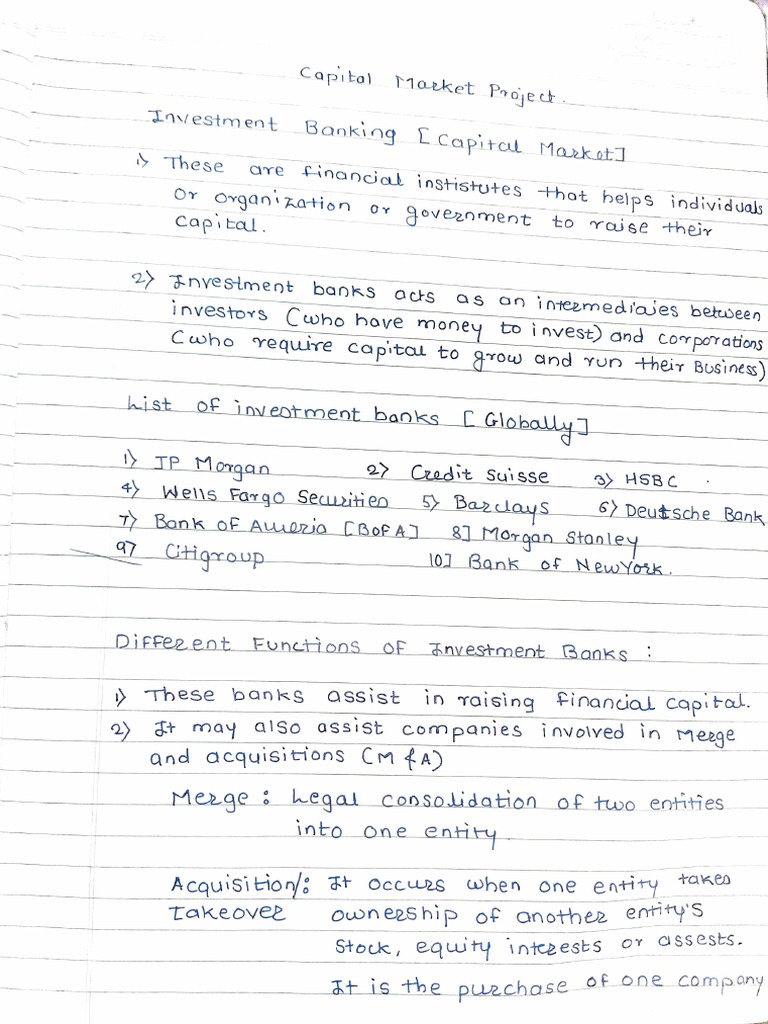 Capital Market Project.
Investment Banking [Capital Market]
1) These are financial institutes that helps individuals
or organization or government to raise their
capital.
2) Investment banks acts as an intermediaies between
investors (who have money to invest) and corporations
(who require capital to grow and run their Business)
List of investment banks [Globally]
1) JP Morgan 2) Credit Suisse 3) HSBC
4) Wells Fargo Securities 5) Barclays 6) Deutsche Bank
7) Bank of Ameria [BofA] 8] Morgan Stanley
9) Citigroup 10] Bank of NewYork.
Different Functions of Investment Banks :
1) These banks assist in raising financial capital.
2) It may also assist companies involved in Merge
and acquisitions (M & A)
Merge : Legal consolidation of two entities
into one entity
Acquisition/: It occurs when one entity takes
Takeover ownership of another entity's
stock, equity interests or assests.
It is the purchase of one company